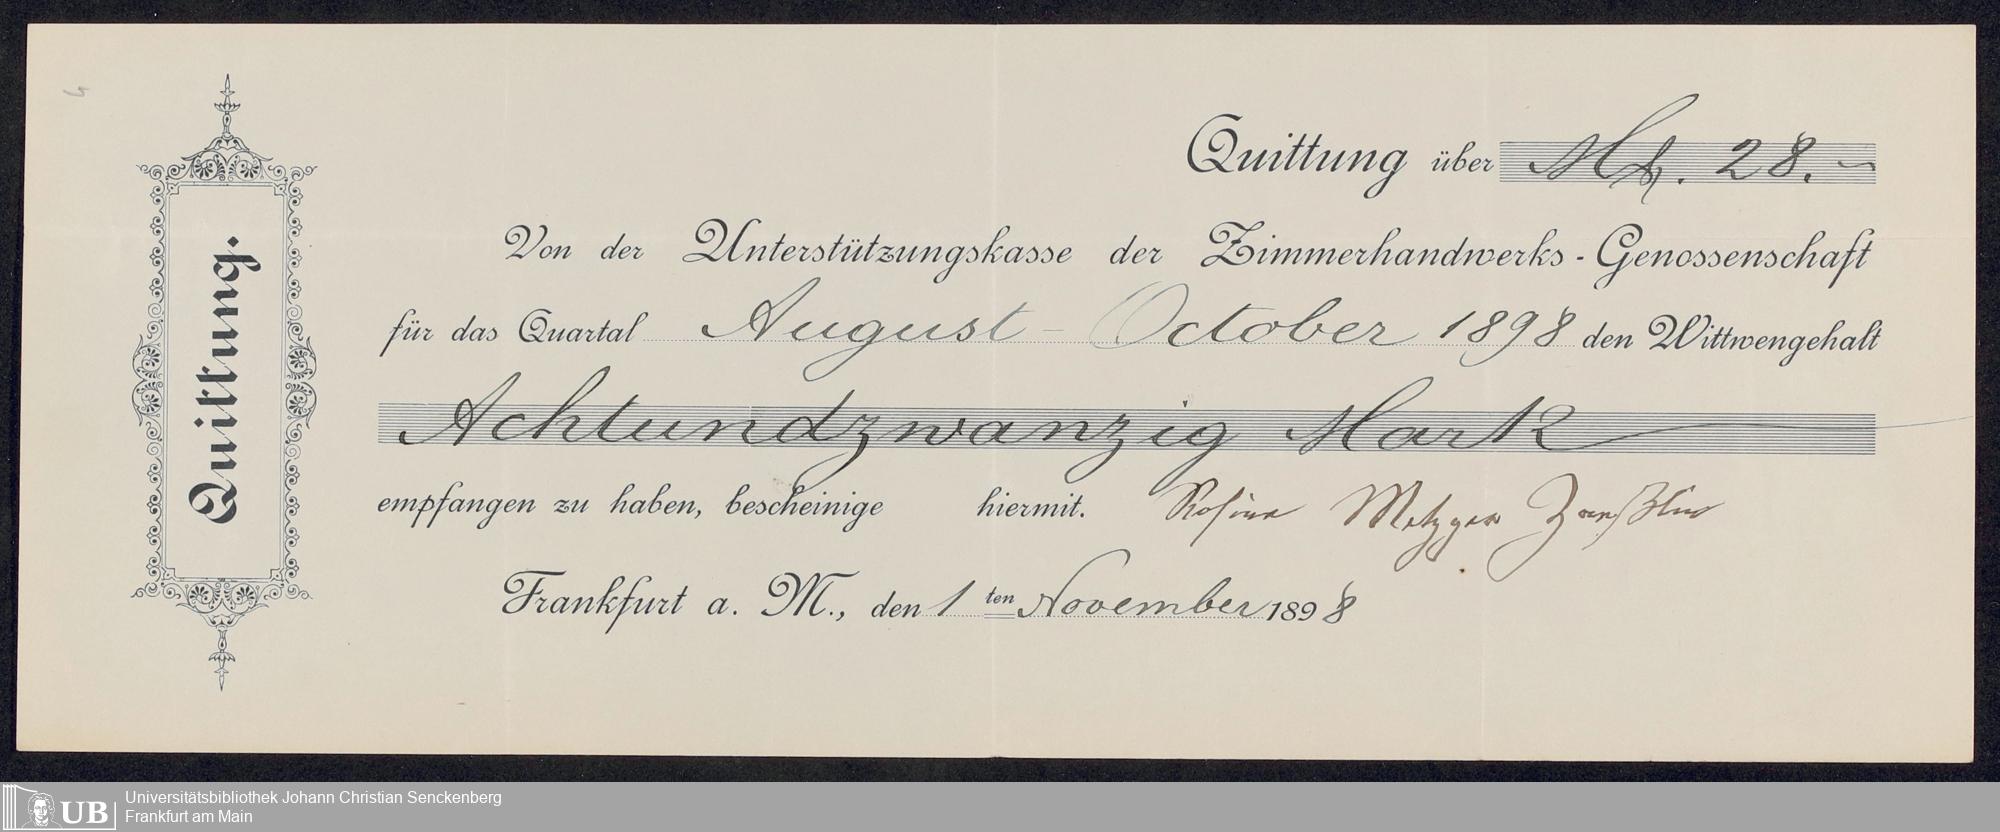 Quittung.
Quittung über Mk. 28.–
Von der Unterstützungskasse der Zimmerhandwerks-Genossenschaft
für das Quartal August – October 1898 den Wittwengehalt
Achtundzwanzig Mark
empfangen zu haben, bescheinige hiermit. Rosina Metzger
Frankfurt a. M., den 1ten November 1898
UB
Universitätsbibliothek Johann Christian Senckenberg
Frankfurt am Main